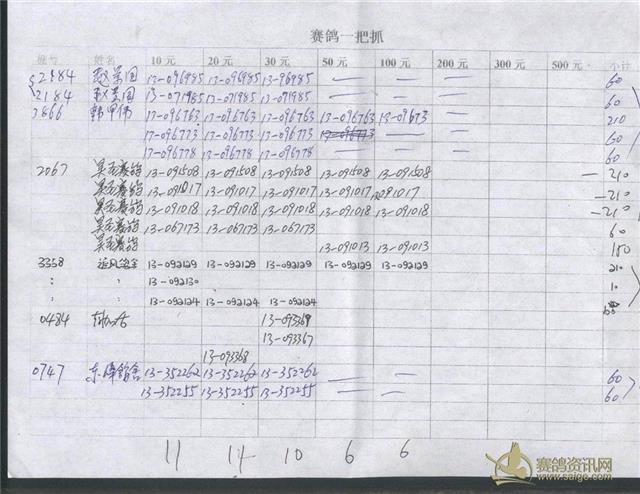 赛鸽一把抓
棚号 姓名 10元 20元 30元 50元 100元 200元 300元 500元 小计
2184 13-096985 13-096985 13-96985 — — 60
2184 13-071985 13-071985 13-071985 — — 60
3866 13-096763 13-096763 13-096763 13-096763 13-096773 210
13-096773 13-096773 13-096773 13-096773 — 60
13-096778 13-096778 13-096778 — — 60
2067 13-091508 13-091508 13-091508 13-091508 13-091508 -210
13-091017 13-091017 13-091017 13-091017 13-091017 -210
13-091018 13-091018 13-091018 13-091018 13-091018 -210
13-067173 13-067173 13-067173 60
13-091013 13-091013 150
3358 13-092129 13-092129 13-092129 13-092129 13-092129 210
: 〃 13-092130 10
: 〃 13-092124 13-092124 13-092124
0484 13-093368
13-093367
13-093368
0747 13-352262 13-352262 13-352262 — — 60
13-352255 13-352255 13-352255 — — 60
11 14 10 6 6
赛鸽资讯网
www.saige.com